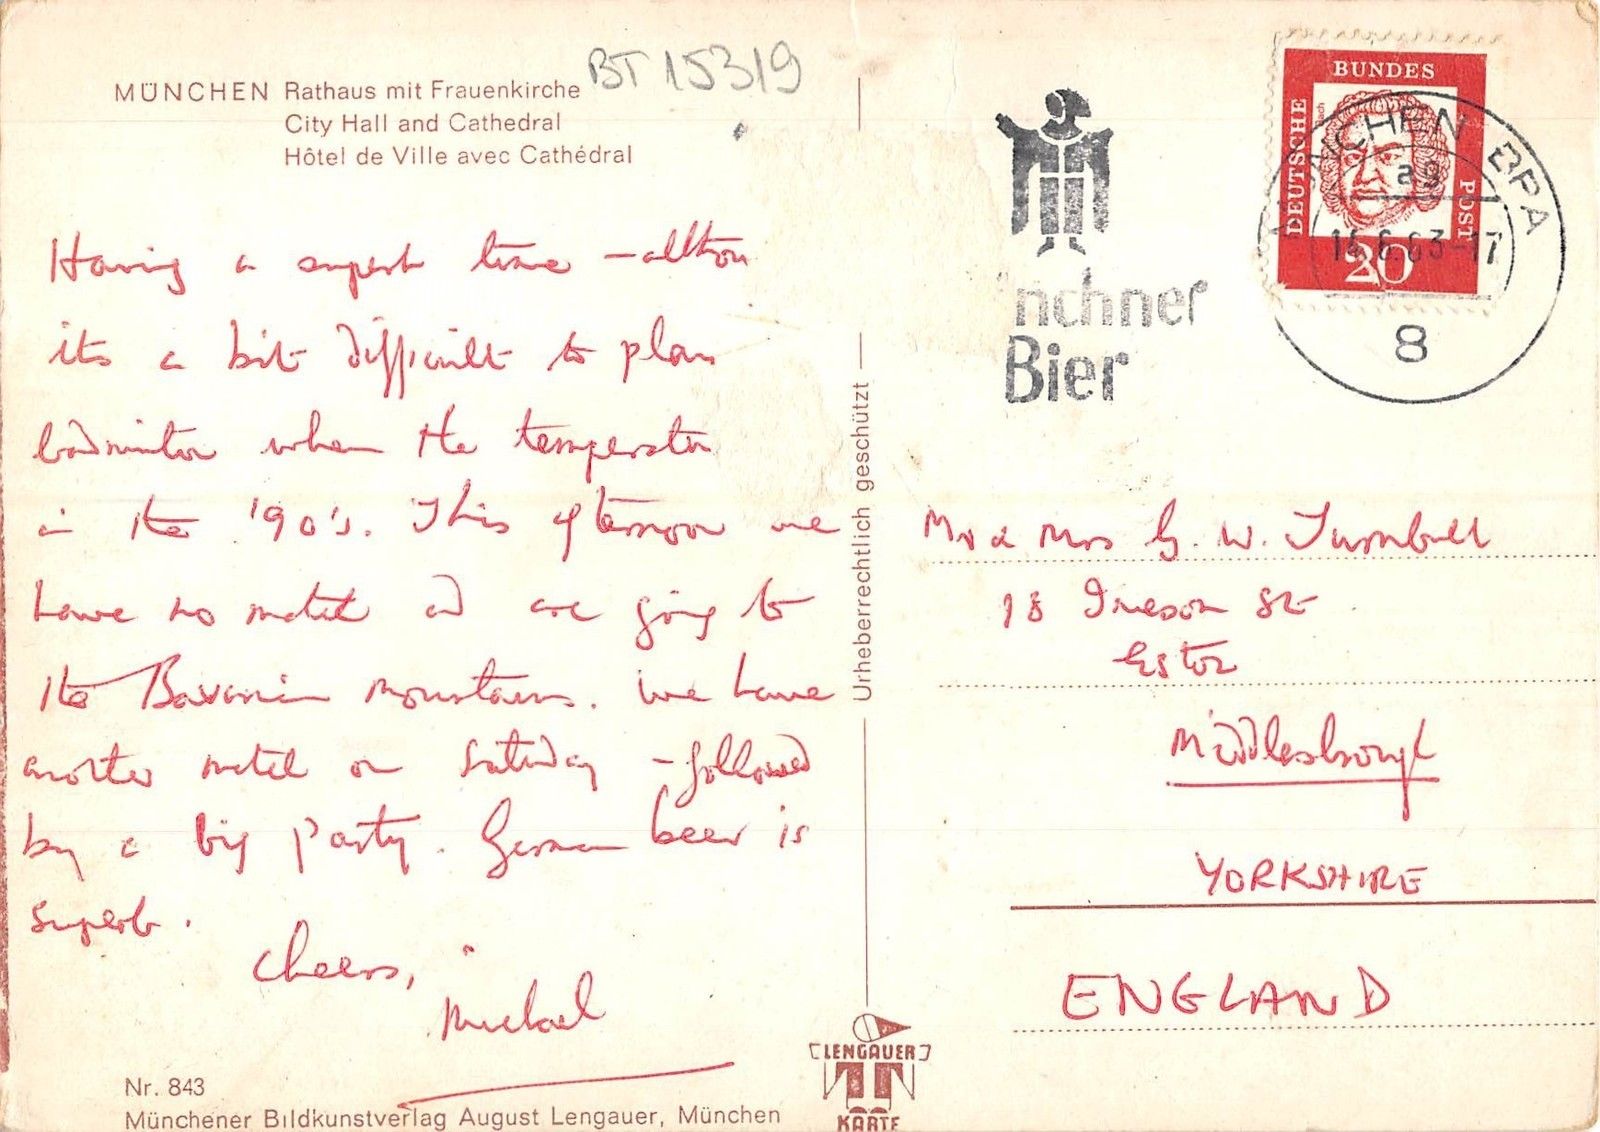 BT 15319
MÜNCHEN Rathaus mit Frauenkirche
City Hall and Cathedral
Hôtel de Ville avec Cathédral
Having a superb time – althou
its a bit difficult to play
badminton when the temperature
in the '90's. This afternoon we
have no match and are going to
the Bavarian mountains. We have
another match on Saturday – followed
by a big party. German beer is
superb.
Cheers,
Michael
Nr. 843
Münchener Bildkunstverlag August Lengauer, München
Urheberrechtlich geschützt
LENGAUER
KARTE
nchner
Bier
DEUTSCHE
BUNDES
POST
20
MÜNCHEN BPA
ag
.6.63-17
8
Mr & Mrs G. W. Turnbull
18 Irveson St
Eston
Middlesbrough
YORKSHIRE
ENGLAND